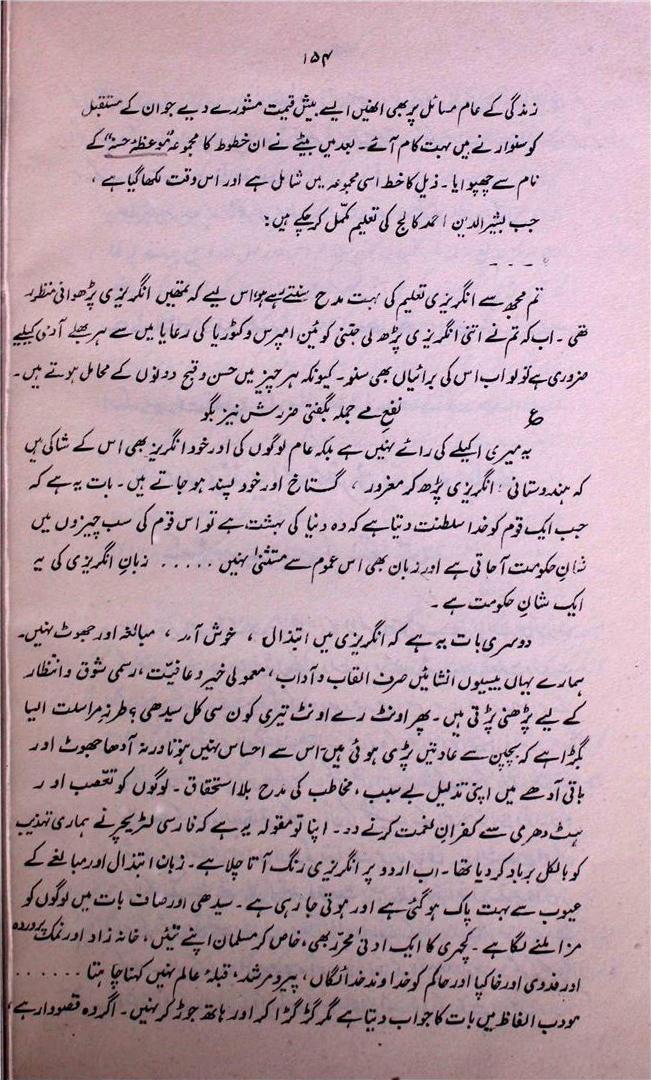 ۱۵۴
زندگی کے عام مسائل پر بھی انھیں ایسے بیش قیمت مشورے دیے جو ان کے مستقبل
کو سنوارنے میں بہت کام آئے۔ بعد میں بیٹے نے ان خطوط کا مجموعہ "موعظۂ حسنہ" کے
نام سے چھپوایا۔ ذیل کا خط اسی مجموعہ میں شامل ہے اور اس وقت لکھا گیا ہے،
جب بشیر الدین احمد کالج کی تعلیم مکمل کر چکے ہیں:
- - - -
تم مجھ سے انگریزی تعلیم کی بہت مدح سنتے رہے ہو اس لیے کہ تمھیں انگریزی پڑھوانی منظور
تھی۔ اب کہ تم نے اتنی انگریزی پڑھ لی جتنی کوئین امپرس وکٹوریا کی رعایا میں سے ہر بھلے آدمی کیلیے
ضروری ہے تو لو اب اس کی برائیاں بھی سنو۔ کیونکہ ہر چیز میں حسن و قبح دونوں کے محامل ہوتے ہیں۔
ع نفع مے جملہ بگفتی ضررش نیز بگو
یہ میری اکیلے کی رائے نہیں ہے بلکہ عام لوگوں کی اور خود انگریز بھی اس کے شاکی ہیں
کہ ہندوستانی؛ انگریزی پڑھ کر مغرور، گستاخ اور خود پسند ہو جاتے ہیں۔ بات یہ ہے کہ
جب ایک قوم کو خدا سلطنت دیتا ہے کہ وہ دنیا کی بہشت ہے تو اس قوم کی سب چیزوں میں
شانِ حکومت آ جاتی ہے اور زبان بھی اس عموم سے مستثنیٰ نہیں ..... زبانِ انگریزی کی یہ
ایک شانِ حکومت ہے۔
دوسری بات یہ ہے کہ انگریزی میں ابتذال، خوش آمد، مبالغہ اور جھوٹ نہیں۔
ہمارے یہاں بیسیوں انشائیں صرف القاب و آداب، معمولی خیر و عافیت، رسمی شوق و انتظار
کے لیے پڑھنی پڑتی ہیں۔ پھر اونٹ رے اونٹ تیری کون سی کل سیدھی؟ طرزِ مراسلت ایسا
بگڑا ہے کہ بچپن سے عادتیں پڑی ہوئی ہیں۔ اس سے احساس نہیں ہوتا ورنہ آدھا جھوٹ اور
باقی آدھے میں اپنی تذلیل بے سبب، مخاطب کی مدح بلا استحقاق۔ لوگوں کو تعصب اور
ہٹ دھری سے کفرانِ نعمت کرنے دو۔ اپنا تو مقولہ یہ ہے کہ فارسی لٹریچر نے ہماری تہذیب
کو بالکل برباد کر دیا تھا۔ اب اردو پر انگریزی رنگ آتا چلا ہے۔ زبان ابتذال اور مبالغے کے
عیوب سے بہت پاک ہو گئی ہے اور ہوتی جا رہی ہے۔ سیدھی اور صاف بات میں لوگوں کو
مزا ملنے لگا ہے۔ کچہری کا ایک ادنیٰ محرّر بھی، خاص کر مسلمان اپنے تئیں، خانہ زاد اور نمک پروردہ
اور فدوی اور خاکپا اور حاکم کو خداوند خدائگاں، پیر و مرشد، قبلۂ عالم نہیں کہنا چاہتا ......
مودب الفاظ میں بات کا جواب دیتا ہے مگر گڑگڑا کر اور ہاتھ جوڑ کر نہیں۔ اگر وہ قصوروار ہے،